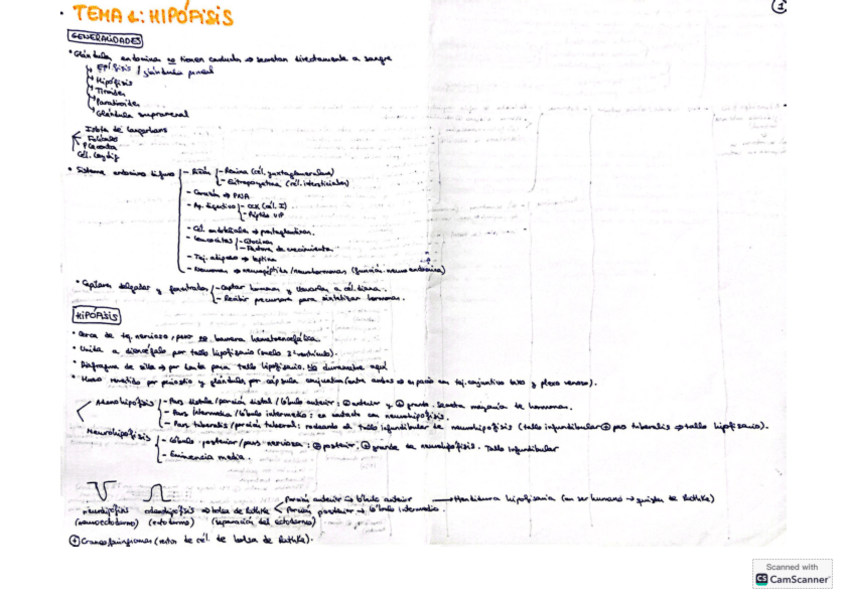 · TEMA 1: HIPÓFISIS
①
GENERALIDADES
· Glándula endocrina no tienen conducto → secretan directamente a sangre
Epífisis / glándula pineal
Hipófisis
Tiroides
Paratiroides
Glándula suprarrenal
Islote de Langerhans
Folículo
Placenta
Cél. Leydig
· Sistema endocrino difuso - Riñón - Renina (cél. yuxtaglomerulares)
- Eritropoyetina (cél. intersticiales)
- Corazón → PNA
- Ap. digestivo - CCK (cél. I)
- Péptido VIP
- Cél. endoteliales → prostaglandinas.
- Leucocitos - Citocinas
- Factores de crecimiento
- Tej. adiposo → leptina
- Neuronas → neuropéptidos/neurohormonas (función neuroendocrina)
· Capilares y fenestrados - Captar hormonas y llevarlas a cél. diana.
- Recibir precursores para sintetizar hormonas.
HIPÓFISIS
· Cerca de tej. nervioso, pero no barrera hematoencefálica.
· Unida a diencéfalo por tallo hipofisario (suelo 3º ventrículo).
· Diafragma de silla → por para tallo hipofisario. No duramadre aquí
· Hueso revestido por periostio y glándula por cápsula conjuntiva (entre ambas → espacio con tej. conjuntivo laxo y plexo venoso).
Adenohipófisis - Pars distalis/porción distal/lóbulo anterior: ⊕ anterior y ⊕ grande. Secreta mayoría de hormonas.
- Pars intermedia/lóbulo intermedio: en contacto con neurohipófisis.
- Pars tuberalis/porción tuberal: rodeando el tallo infundibular de neurohipófisis (tallo infundibular ⊕ pars tuberalis → tallo hipofisario).
Neurohipófisis - Lóbulo posterior/pars nerviosa: ⊕ posterior, ⊕ grande de neurohipófisis. Tallo infundibular
- Eminencia media.
neurohipófisis (neuroectodermo)
adenohipófisis (ectodermo) → bolsa de Rathke (separación del ectodermo)
Porción anterior → lóbulo anterior
Porción posterior → lóbulo intermedio.
→ Hendidura hipofisaria (en ser humano → quistes de Rathke)
⊕ Craneofaringiomas (restos de cél. de bolsa de Rathke).
Scanned with
CS CamScanner